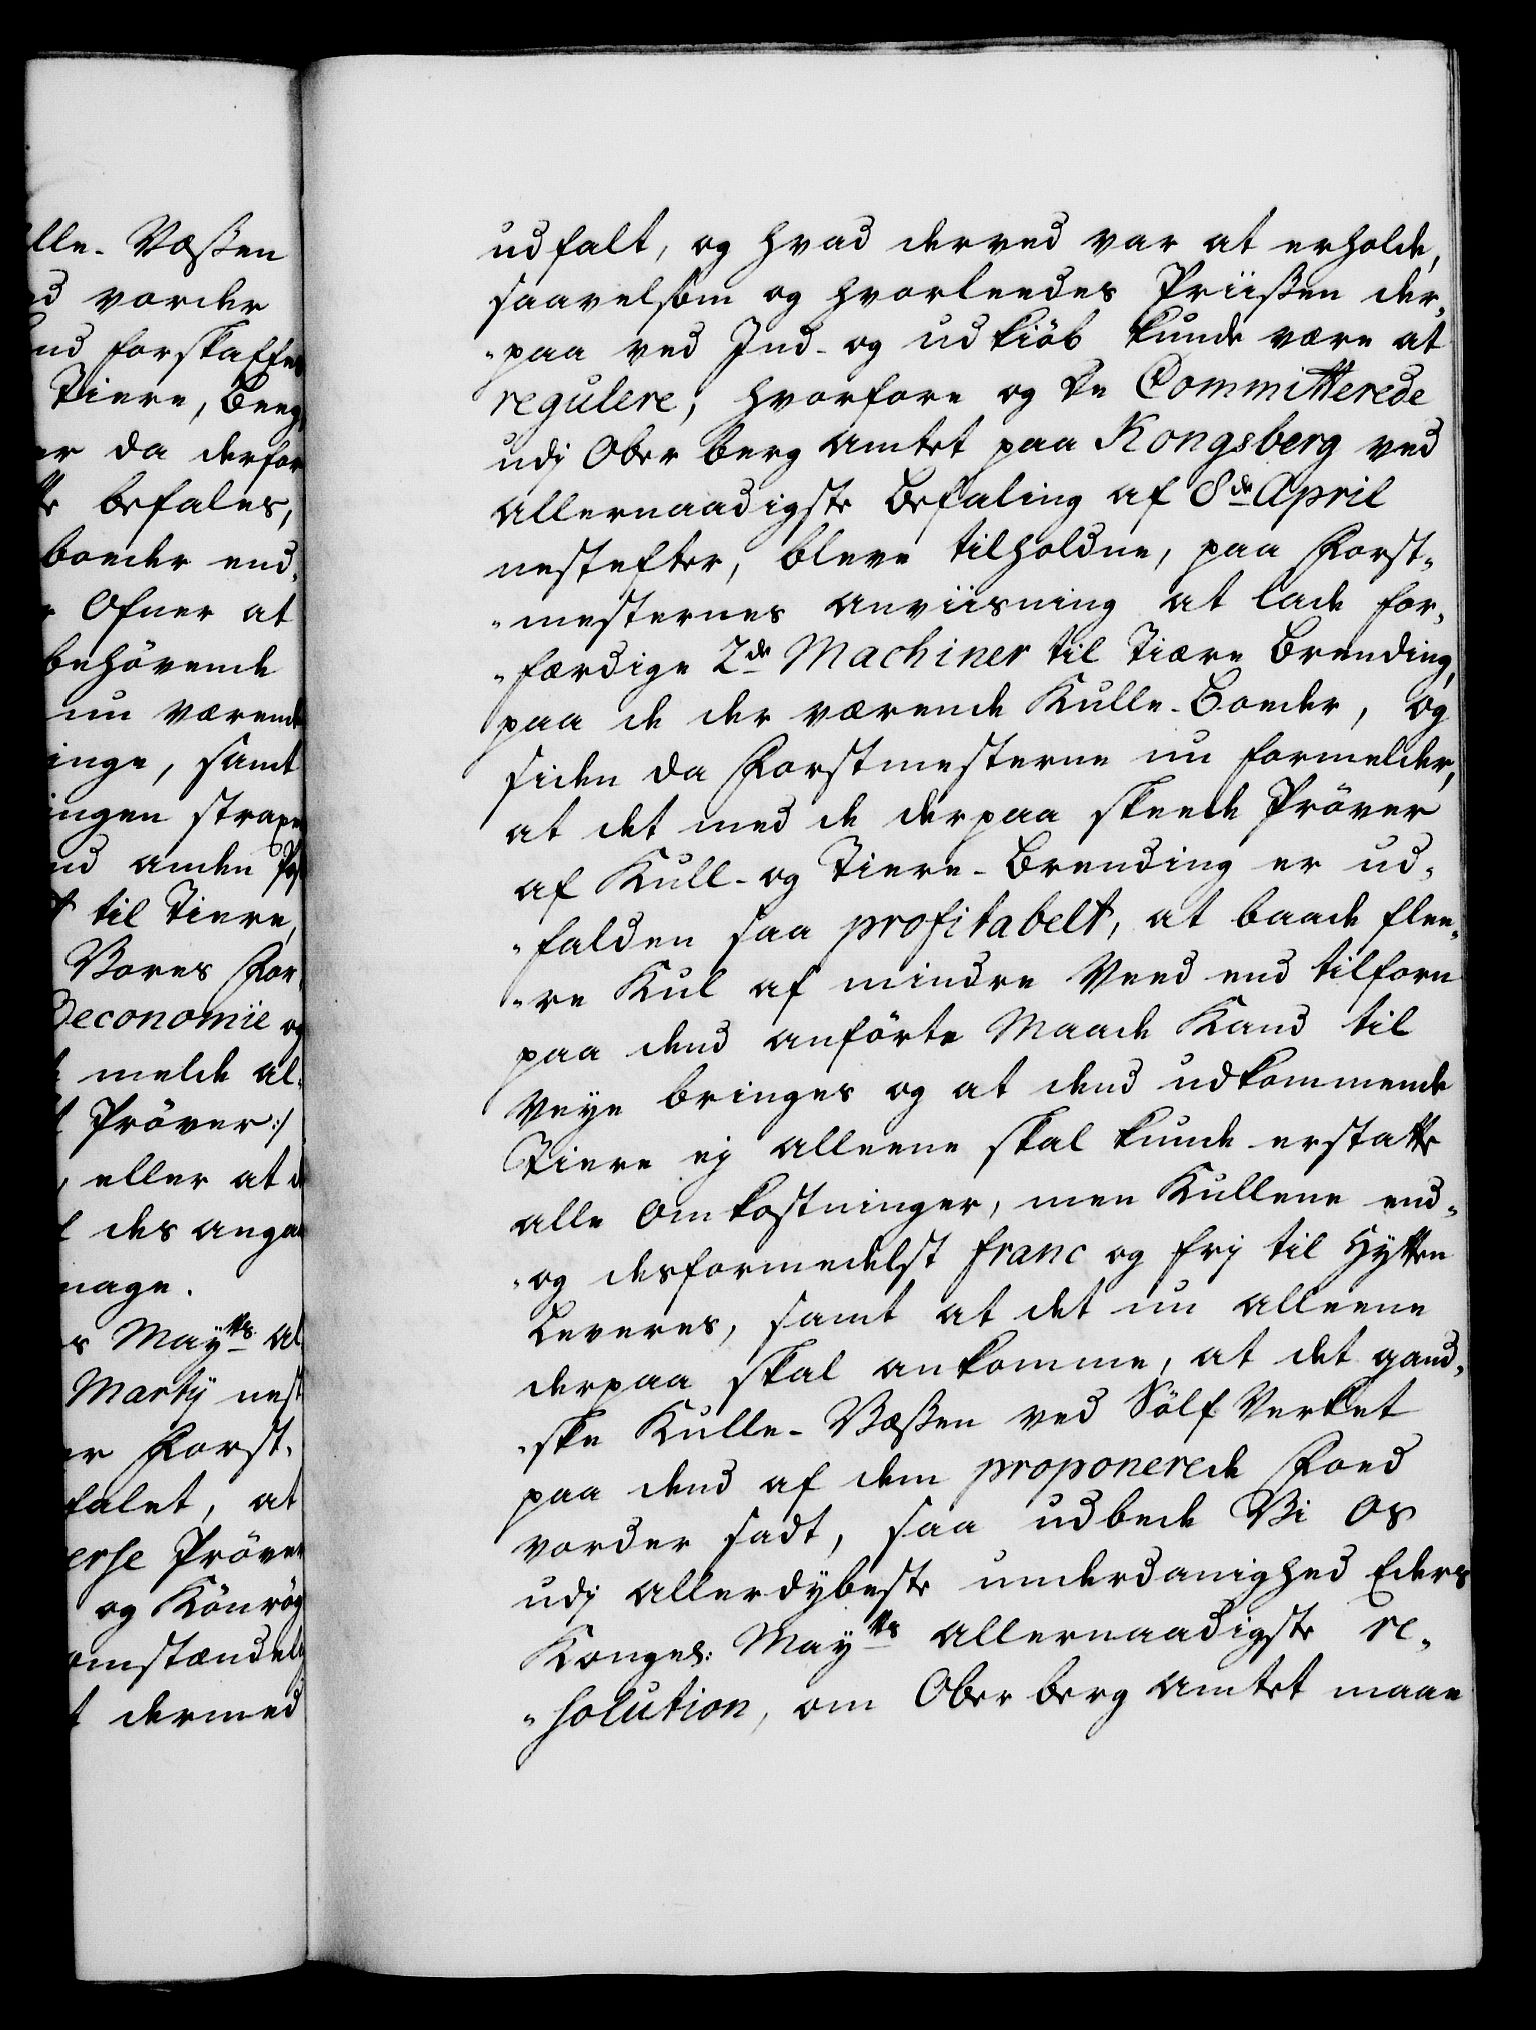 lle- Væßen
d vorder
nd forskaffes
Tiere, Beeg
er da derfor
te befales,
boeder end„
r Ofner at
behövende
nu værende
inge, samt
ingen straxe
nd anden
t til Tiere,
Vores For„
Oeconomie og
melde al„
Pröver:/
, eller at d
l des angaa
nage.
s Mayts al
Marty nest
er Forst„
falet, at
erse Pröver
og Könrög
omstændeli
t dermed
udfalt, og hvad derved var at erholde,
saavelsom og hvorleedes Priißen der„
„paa ved Ind- og udkiöb kunde være at
regulere; hvorfore og De Committerede
udj Ober berg Amtet paa Kongsberg ved
allernaadigste Befaling af 8de April
nestefter, bleve tilholdne, paa Forst„
„mesternes anviisning at lade for„
„færdige 2de Machiner til Tiære Brending,
paa de der værende Kulle-Boeder, og
siden da Forstmesterne nu formelder,
at det med de derpaa skeede Pröver
af Kull- og Tiere-Brending er ud„
„falden saa profitabelt, at baade flee„
„re Kul af mindre Veed end tilforn
paa dend anförte Maade Kand til
veye bringes og at dend udkommende
Tiere ej alleene skal kunde erstatte
alle Omkostninger, men Kullene end„
„og desformedelst franc og frj til Hytten
Leveres, samt at det nu alleene
derpaa skal ankomme, at det gand„
„ske Kulle-Væßen ved Sölf Verket
paa dend af dem proponerede Foed
vorder sadt, saa udbede Vi Os
udj allerdybeste underdanighed Eders
Kongel: Mayts allernaadigste re„
„solution, om Ober berg Amtet maae